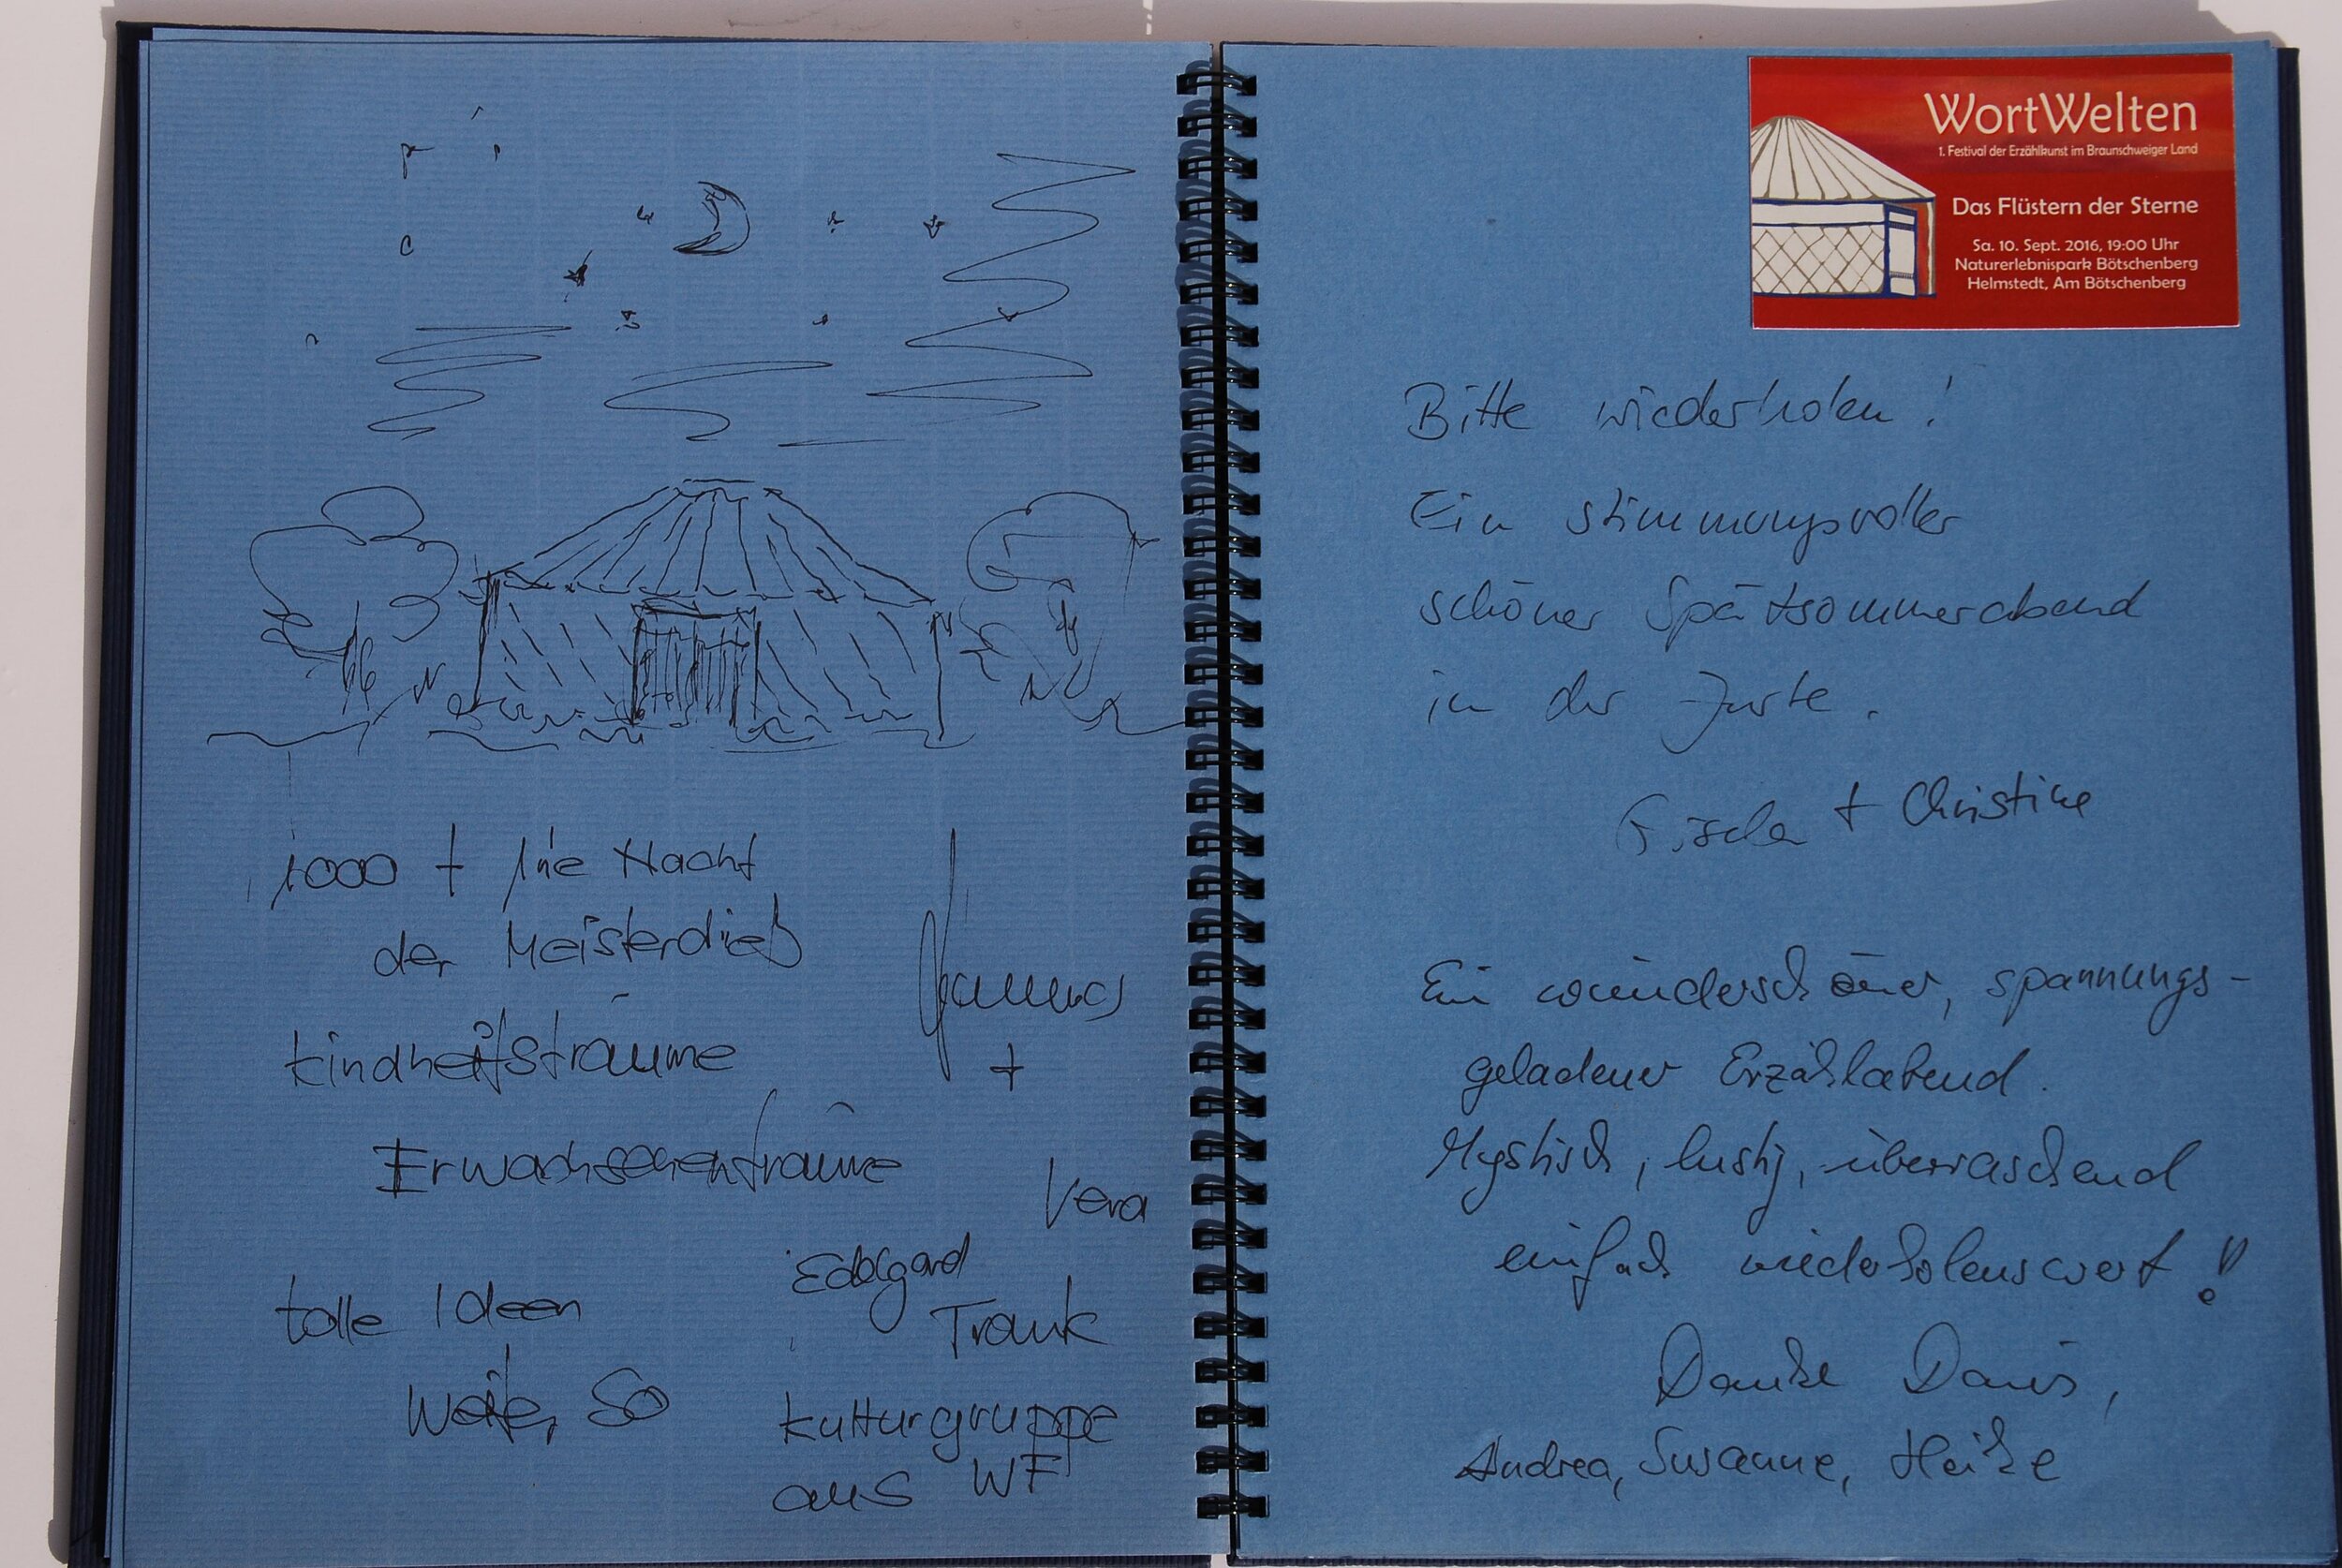 1000 + 1'ne Nacht
der Meisterdieb
Kindheitsträume
Erwachsenenträume
Hannes
+
Vera
tolle Ideen
weiter so
Frank
Kulturgruppe
aus WF
WortWelten
1. Festival der Erzählkunst im Braunschweiger Land
Das Flüstern der Sterne
Sa. 10. Sept. 2016, 19:00 Uhr
Naturerlebnispark Bötschenberg
Helmstedt, Am Bötschenberg
Bitte wiederholen!
Ein stimmungsvoller
schöner Spätsommerabend
in der Jurte.
Gisela + Christine
Ein wunderschöner, spannungs-
geladener Erzählabend.
Mystisch, lustig, überraschend
einfach wiederholenswert!
Danke Doris,
Andrea, Susanne, Heike